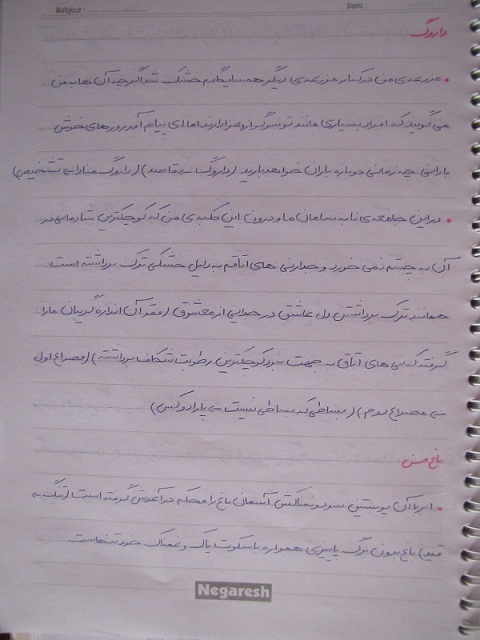 Subject
Date
داروگ
• مزرعه ی من در کنار مزرعه ی دیگر همسایگانم خشک شد اگرچه آن ها به من
می گویند که افراد بسیاری مانند تو سوگوار و عزادارند اما ای پیام آور روزهای خوش
بارانی چه زمانی دوباره باران خواهد بارید (داروگ ← قاصد) (داروگ منادا ← تشخیص)
• در این جامعه ی نابه سامان ما و درون این کلبه ی من که کوچکترین شادمانی در
آن به چشم نمی خورد و جداره نی های اتاقم به دلیل خشکی ترک برداشته است
همانند ترک برداشتن دل عاشق در جدایی از معشوق (فقر آن اندازه گریبان ما را
گرفته که نی های اتاق به جهت نبود کوچکترین رطوبت شکاف برداشته) (مصراع اول
← مصراع دوم) (بساطی که بساطی نیست ← پارادوکس)
باغ من
• ابر با آن پوستین سرد و نمناکش آسمان باغ را محکم در آغوش گرفته است (تنگ ←
قید) باغ بدون برگ پاییزی همواره با سکوت پاک و غمناک خود تنهاست
Negaresh